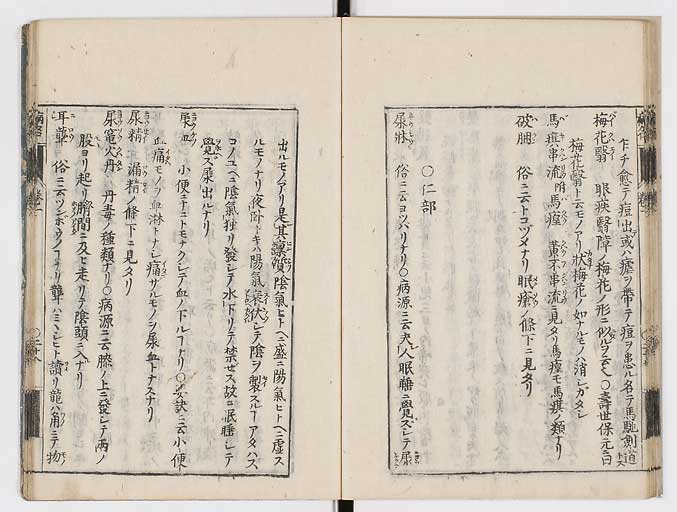 乍チ愈テ痘出或ハ瘧ヲ帶テ痘ヲ患ル名テ馬馳劍道トス
梅花翳 眼疾翳障ノ梅花ノ形ニ似ルヲ云〇壽世保元ニ曰
梅花翳ト云モノアリ狀梅花ノ如ナルモノハ消シガタシ
馬瘼串流 附馬瘴 黃不串流ニ見タリ馬瘴モ馬瘼ノ類ナリ
破胭 俗ニ云トコヅメナリ眠瘡ノ條下ニ見タリ
〇仁部
尿牀 俗ニ云ヨツバリナリ〇病源ニ云夫人眠睡ニ覺ズシテ尿
出ルモノアリ是其稟質陰氣ヒトヘニ盛ニ陽氣ヒトヘニ虛ス
ルモノナリ夜卧トキハ陽氣衰伏シテ陰ヲ製スルヿアタハズ
コノユヘニ陰氣独リ發シテ水下リテ禁ぜス故ニ眠睡シテ
覺ズ尿出ルナリ
尿血 小便ニナニトモナクシテ血ノ下ルヿナリ〇要訣ニ云小便
血痛モノヲ血淋トナシ痛ザルモノヲ尿血トナスナリ
尿精 漏精ノ條下ニ見タリ
尿竈火丹 丹毒ノ種類ナリ〇病源ニ云膝ノ上ニ發シテ両ノ
股ヨリ起リ臍間ニ及ヒ走リテ陰頭ニ入ナリ
耳聾 俗ニ云ツンボウノコナリ聾ハミミシヒト讀リ龍ハ角ニテ物